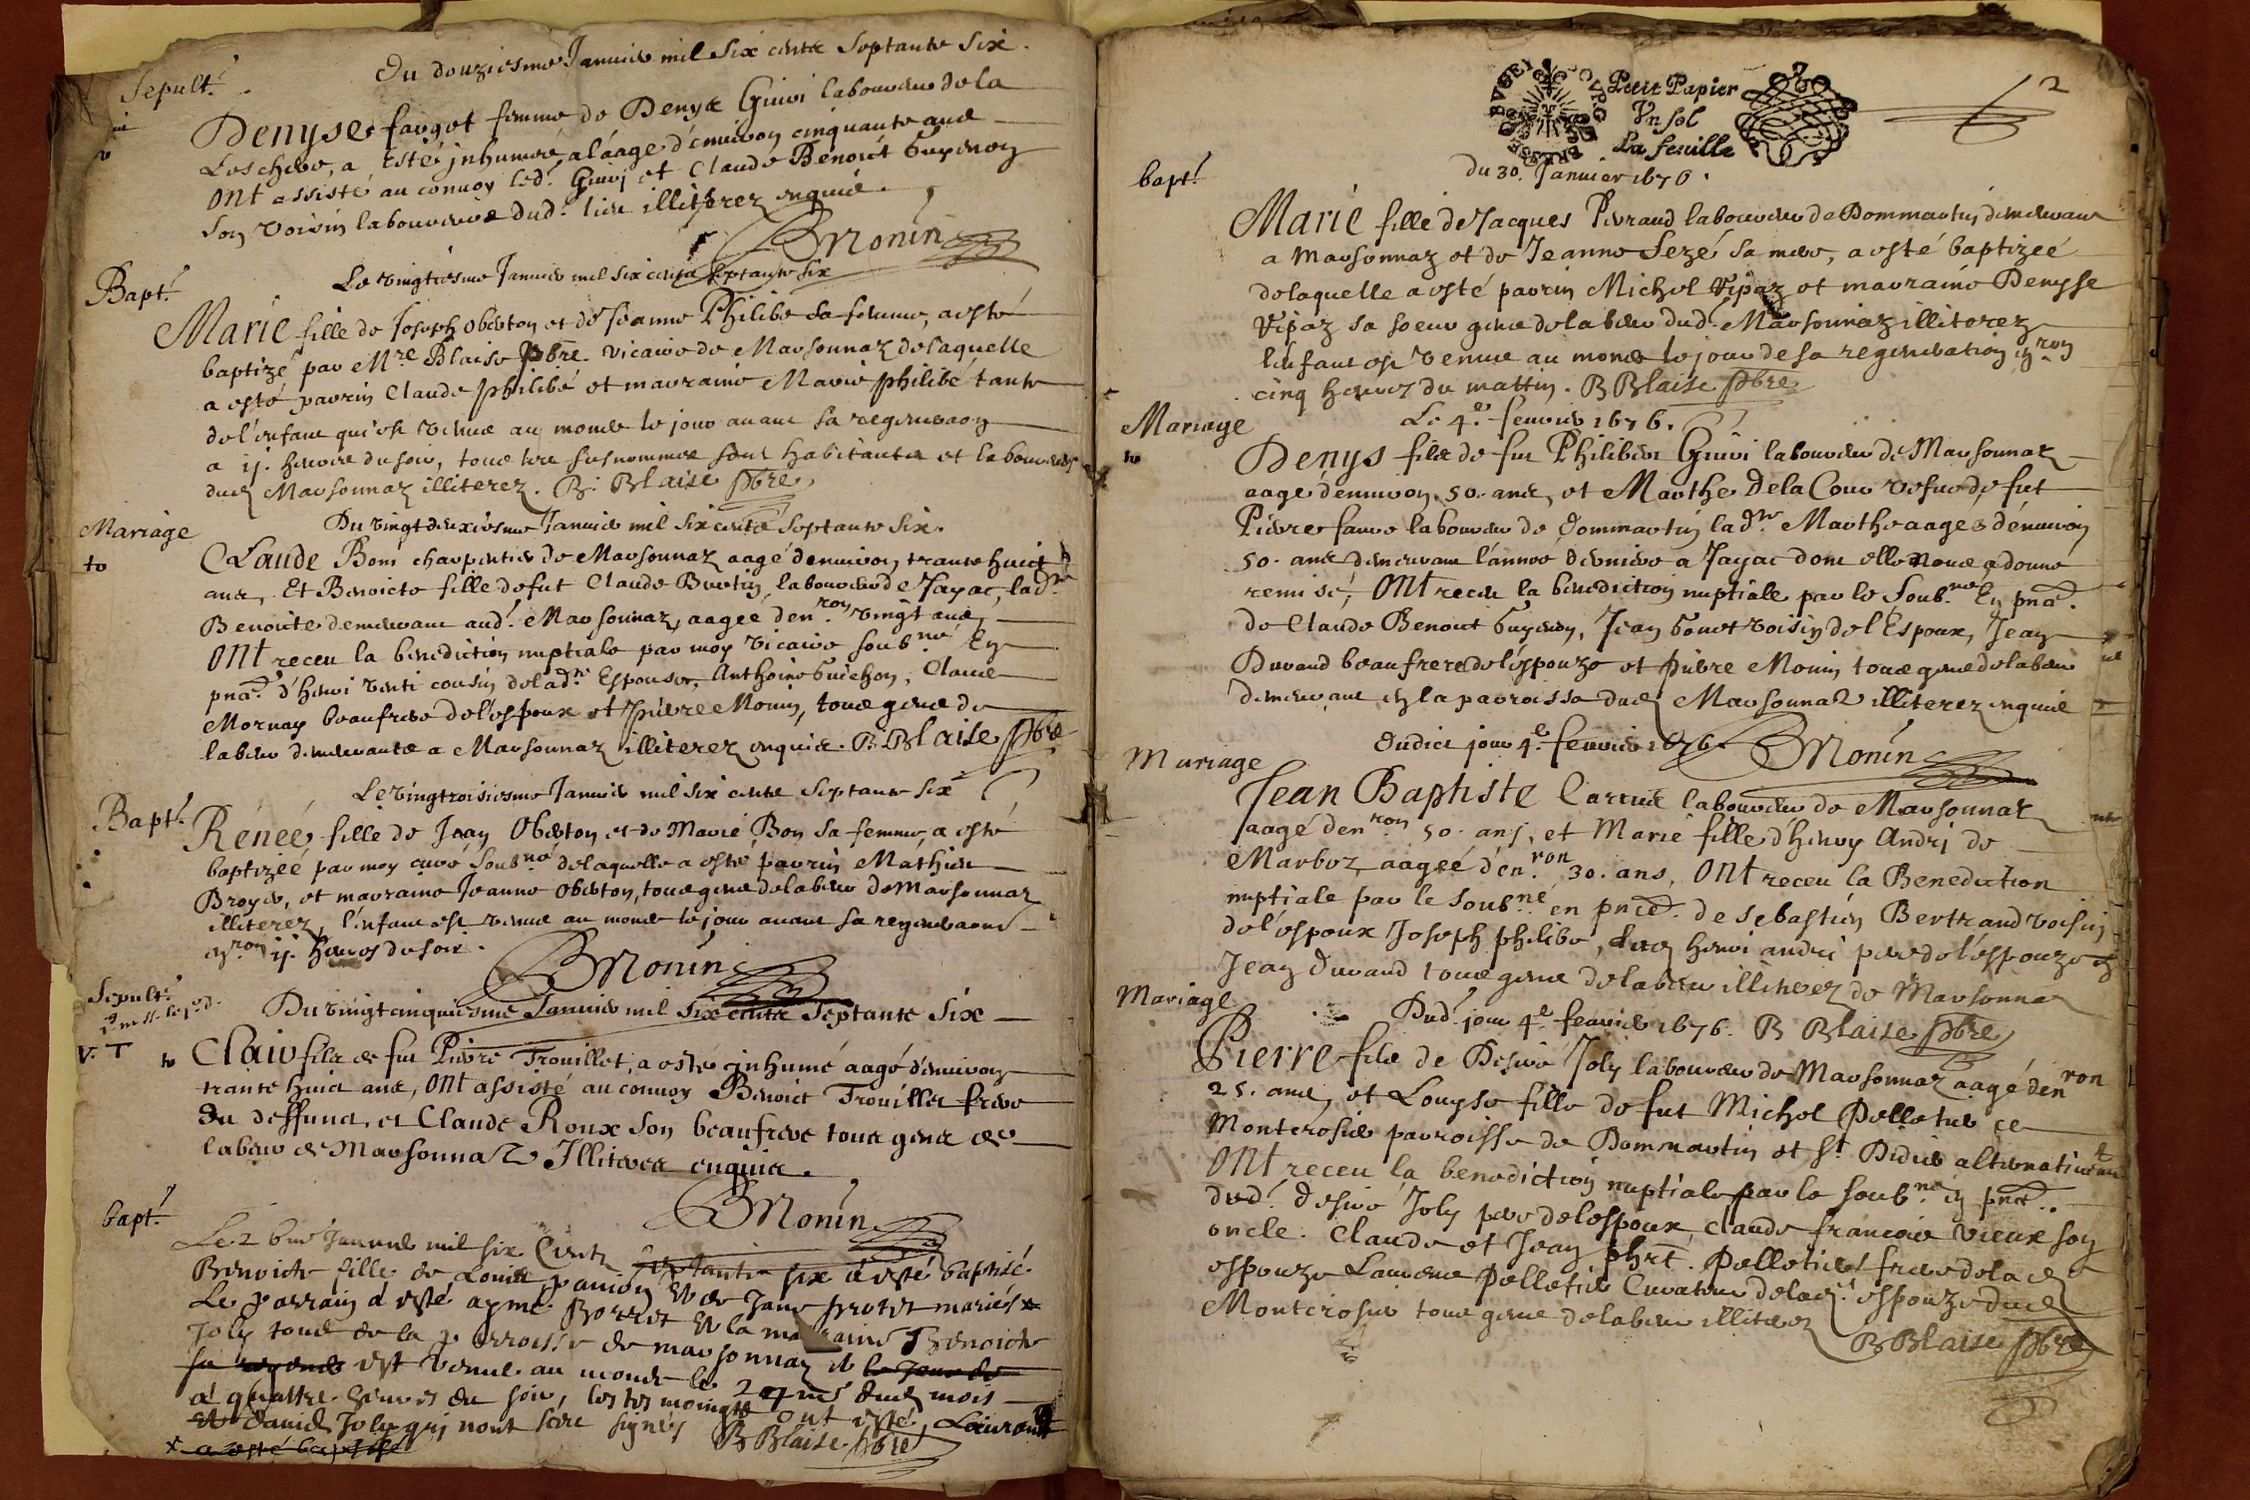 Sepult.
Du douziesme Janvier mil six cents septante six.
Denyse faugot femme de Denys Guivi laboureur de la
Leschere, a esté inhumée, a l'aage d'environ cinquante ans
ont assisté au convoy led. Guivi et Claude Benoict
son voisin laboureurs dud. lieu illiterez enquis.
BMonin
Bapt.
Le vingtiesme Janvier mil six cents septante six
Marie fille de Joseph Oberton et de Jeanne Philibe sa femme, a esté
baptizé par Mre Blaise pbre. vicaire de Marsonnaz de laquelle
a esté parrin Claude philibé et marraine Marie philibé tante
de l'enfant qui est venue au monde le jour avant sa regeneraon
a ij. heures du soir, tous les susnommes sont habitants et laboureurs
dud Marsonnaz illiterez. B. Blaise pbre
Mariage
Du vingt deuxiesme Janvier mil six cents septante six.
Claude Bon charpentier de Marsonnaz aagé denviron trante huict
ans, Et Benoicte fille de fut Claude Burtin laboureur de Jayac, lad.
Benoicte demeurant aud. Marsonnaz, aagée den.ron vingt ans,
ont receu la benediction nuptiale par moy vicaire soub.né En
pnce. d'henri cousin de lad. Espouse, Anthoine Guichon, Claude
Mornay beaufrere de l'espoux et pierre Monin, tous gens de
labeur demeurants a Marsonnaz illiterez enquis. B. Blaise pbre
Bapt.
Le vingtroisiesme Janvier mil six cents septante six
Rénée fille de Jean Oberton et de Marie Bon sa femme, a esté
baptizéé par moy curé soub.né de laquelle a esté parrin Mathieu
Broyer, et marraine Jeanne Oberton, tous gens de labeur de Marsonnaz
illiterez, l'enfant est venue au monde le jour avant sa regeneraon
en.ron ij. heures du soir.
BMonin
Sepult.
V. T
Du vingt cinquiesme Janvier mil six cents Septante Six
Clair fils de fut Pierre Trouillet, a esté inhumé aagé d'environ
trante huict ans, ont assisté au convoy Benoict Trouillet frere
du deffunct, et Claude Roux son beaufrere tous gens de
labeur de Marsonnaz Illiteres enquis.
BMonin
bapt.
Le 2 Janvier mil six Cents septante six a esté baptisé
Benoicte fille de Louis panion et de Jane mariés x
Le parrain a esté aymé Borret et la marraine Benoicte
Joly tous de la parroisse de marsonnaz et le jour de
sa est venue au monde le 24me dud mois
a quattre heures du soir, les tesmoings ont esté Laurant
et Joly qui n'ont sceu signer B Blaise pbre
x a esté baptisé
2
Petit Papier
Un sol
La feuille
du 30. Janvier 1676.
bapt.
Marie fille de Jacques Perraud laboureur de Dommartin demeurant
a Marsonnaz et de Jeanne Sezé sa mere, a esté baptizéé
de laquelle a esté parrin Michel Vipaz et marraine Denyse
Vipaz sa soeur gens de labeur dud. Marsonnaz illiterez
l'enfant est venue au monde le jour de sa regeneration en.ron
cinq heures du mattin. B Blaise pbre
Mariage
Le 4.e fevrier 1676.
Denys fils de fut Philibert Guivi laboureur de Marsonnaz
aage denviron 50. ans, et Marthe De la Cour vefve de fut
Pierre favre laboureur de Dommartin lad. Marthe aagee d'environ
50. ans demeurant l'année derniere a Jayac dont elle nous a donné
remise, ont receu la benediction nuptiale par le soub.né En pnce.
de Claude Benoict, Jean voisin de l'Espoux, Jean
Durand beaufrere de l'espouze et pierre Monin tous gens de labeur
demeurant en la parroisse dud Marsonnaz illiterez enquis
BMonin
Mariage
Dudict jour 4.e fevrier 1676.
Jean Baptiste Carruz laboureur de Marsonnaz
aagé den.ron 50. ans, et Marie fille d'henry Andri de
Marboz, aagéé d'en.ron 30. ans, ont receu la Benediction
nuptiale par le soub.né en pnce. de Sebastien Bertrand voisin
de l'espoux Joseph philibe, henri andri pere de l'espouze et
Jean Durand tous gens de labeur illiterez de Marsonnaz
Mariage
Dud. jour 4.e fevrier 1676. B Blaise pbre
Pierre fils de Desiré Joly laboureur de Marsonnaz aagé den.ron
25. ans, et Louyse fille de fut Michel Pelletier de
Montcrosier parroisse de Dommartin et St. Didier alternativement
ont receu la benediction nuptiale par le soub.né en pnce.
dud. Desiré Joly pere de l'espoux, Claude francois vieux son
oncle. Claude et Jean phrt. Pelletier freres de lad
espouze Laurent Pelletier Curateur de lad. espouze dud
Montcrosier tous gens de labeur illiterez
B Blaise pbre